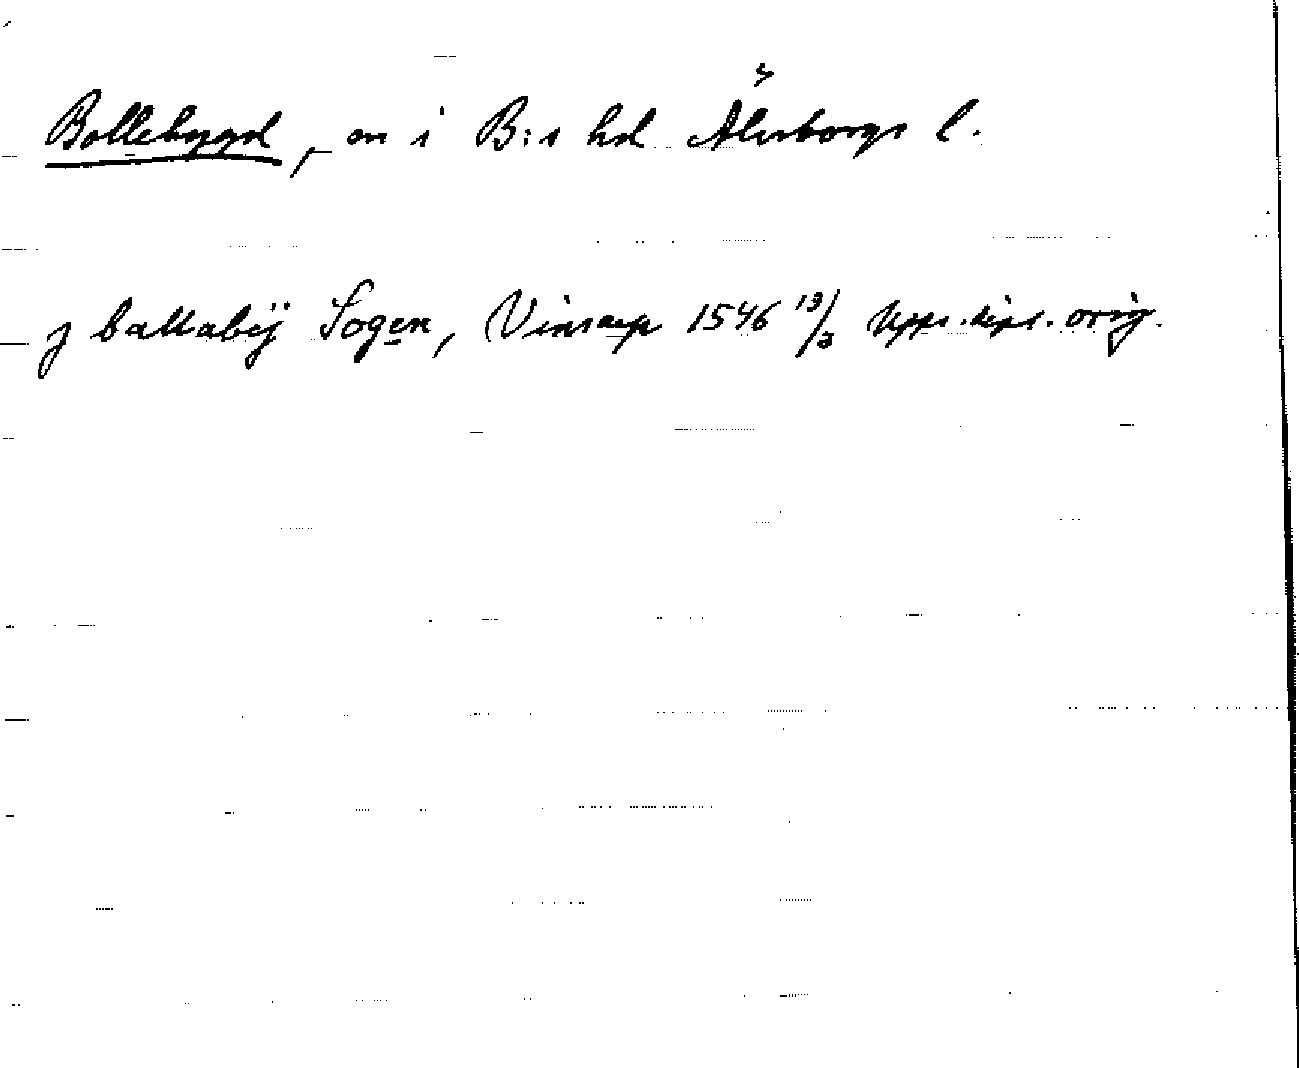 Bollebygd, sn i B:s hd Älvsborgs l.
j ballabÿ Sogen, Vinsarp 1546 13/3 Upps. dipl. orig.